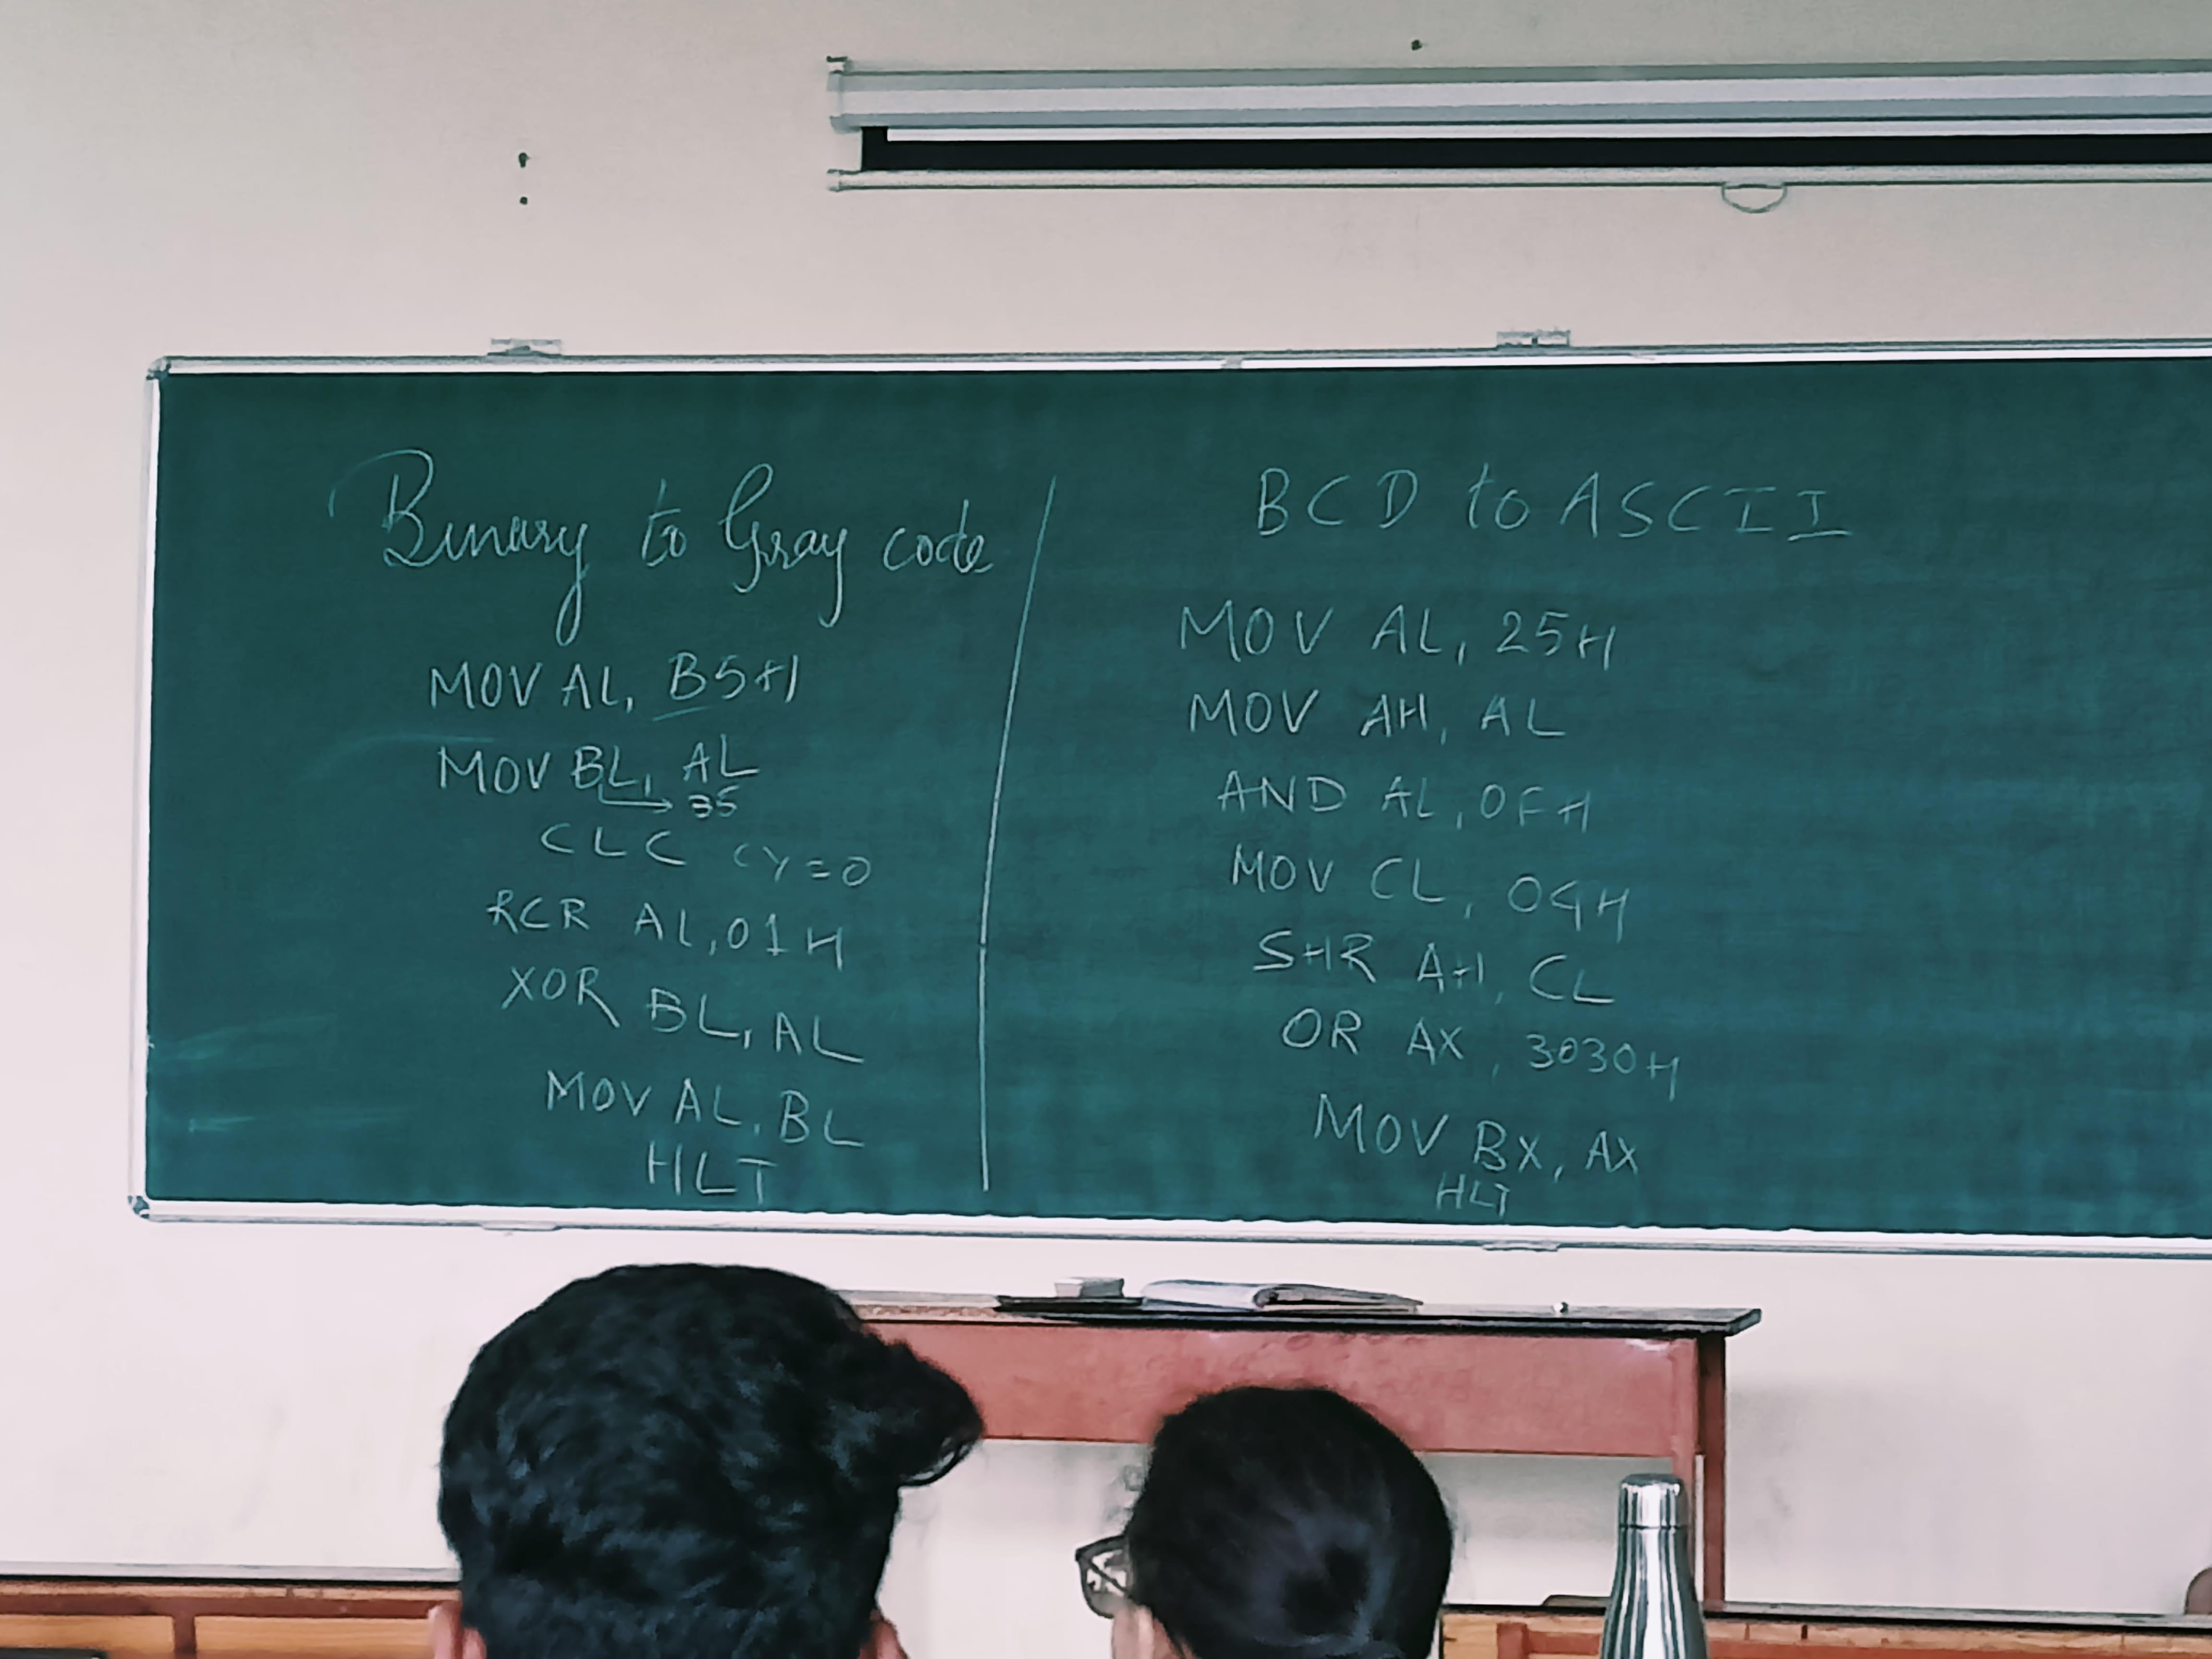 Binary to Gray code
MOV AL, B5H
MOV BL, AL
35
CLC CY=0
RCR AL, 01H
XOR BL, AL
MOV AL, BL
HLT
BCD to ASCII
MOV AL, 25H
MOV AH, AL
AND AL, 0FH
MOV CL, 04H
SHR AH, CL
OR AX, 3030H
MOV BX, AX
HLT